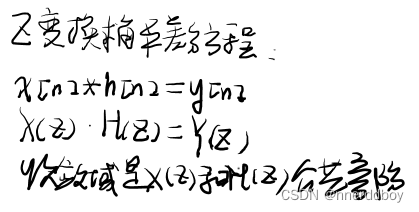 Z变换解差分方程:
x[n]*h[n]=y[n]
X(Z)·H(Z)=Y(Z)
收敛域是X(Z)和H(Z)公共部分
CSDN @nnerddboy